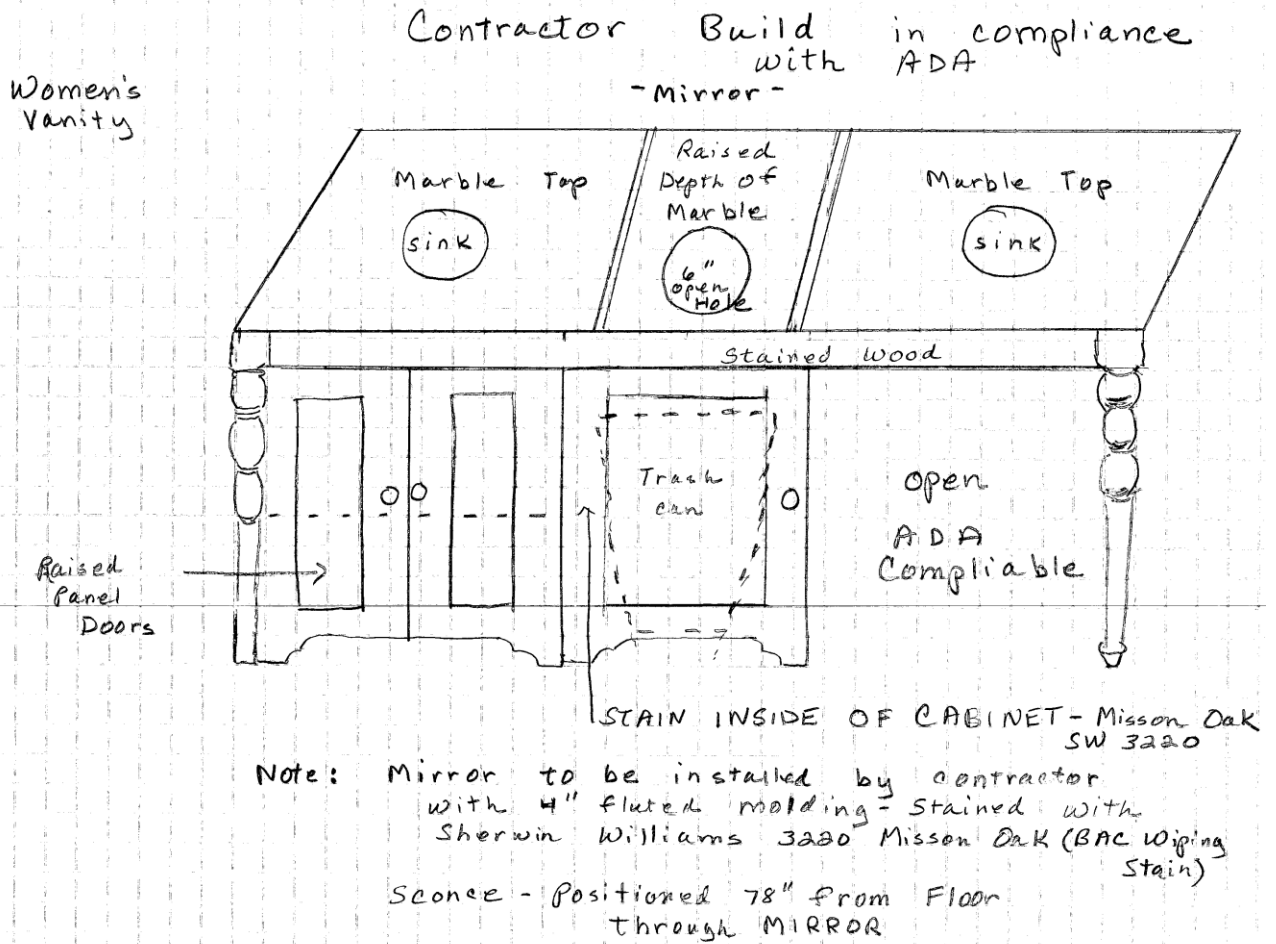 Contractor Build in compliance
with ADA
Women's
Vanity
- Mirror -
Marble Top
sink
Raised
Depth of
Marble
6"
open
Hole
Marble Top
sink
Stained Wood
Trash
can
open
ADA
Compliable
Raised
Panel
Doors
STAIN INSIDE OF CABINET - Misson Oak
SW 3220
Note: Mirror to be installed by contractor
with 4" fluted molding - Stained with
Sherwin Williams 3220 Misson Oak (BAC Wiping
Stain)
Sconce - Positioned 78" from Floor
through MIRROR